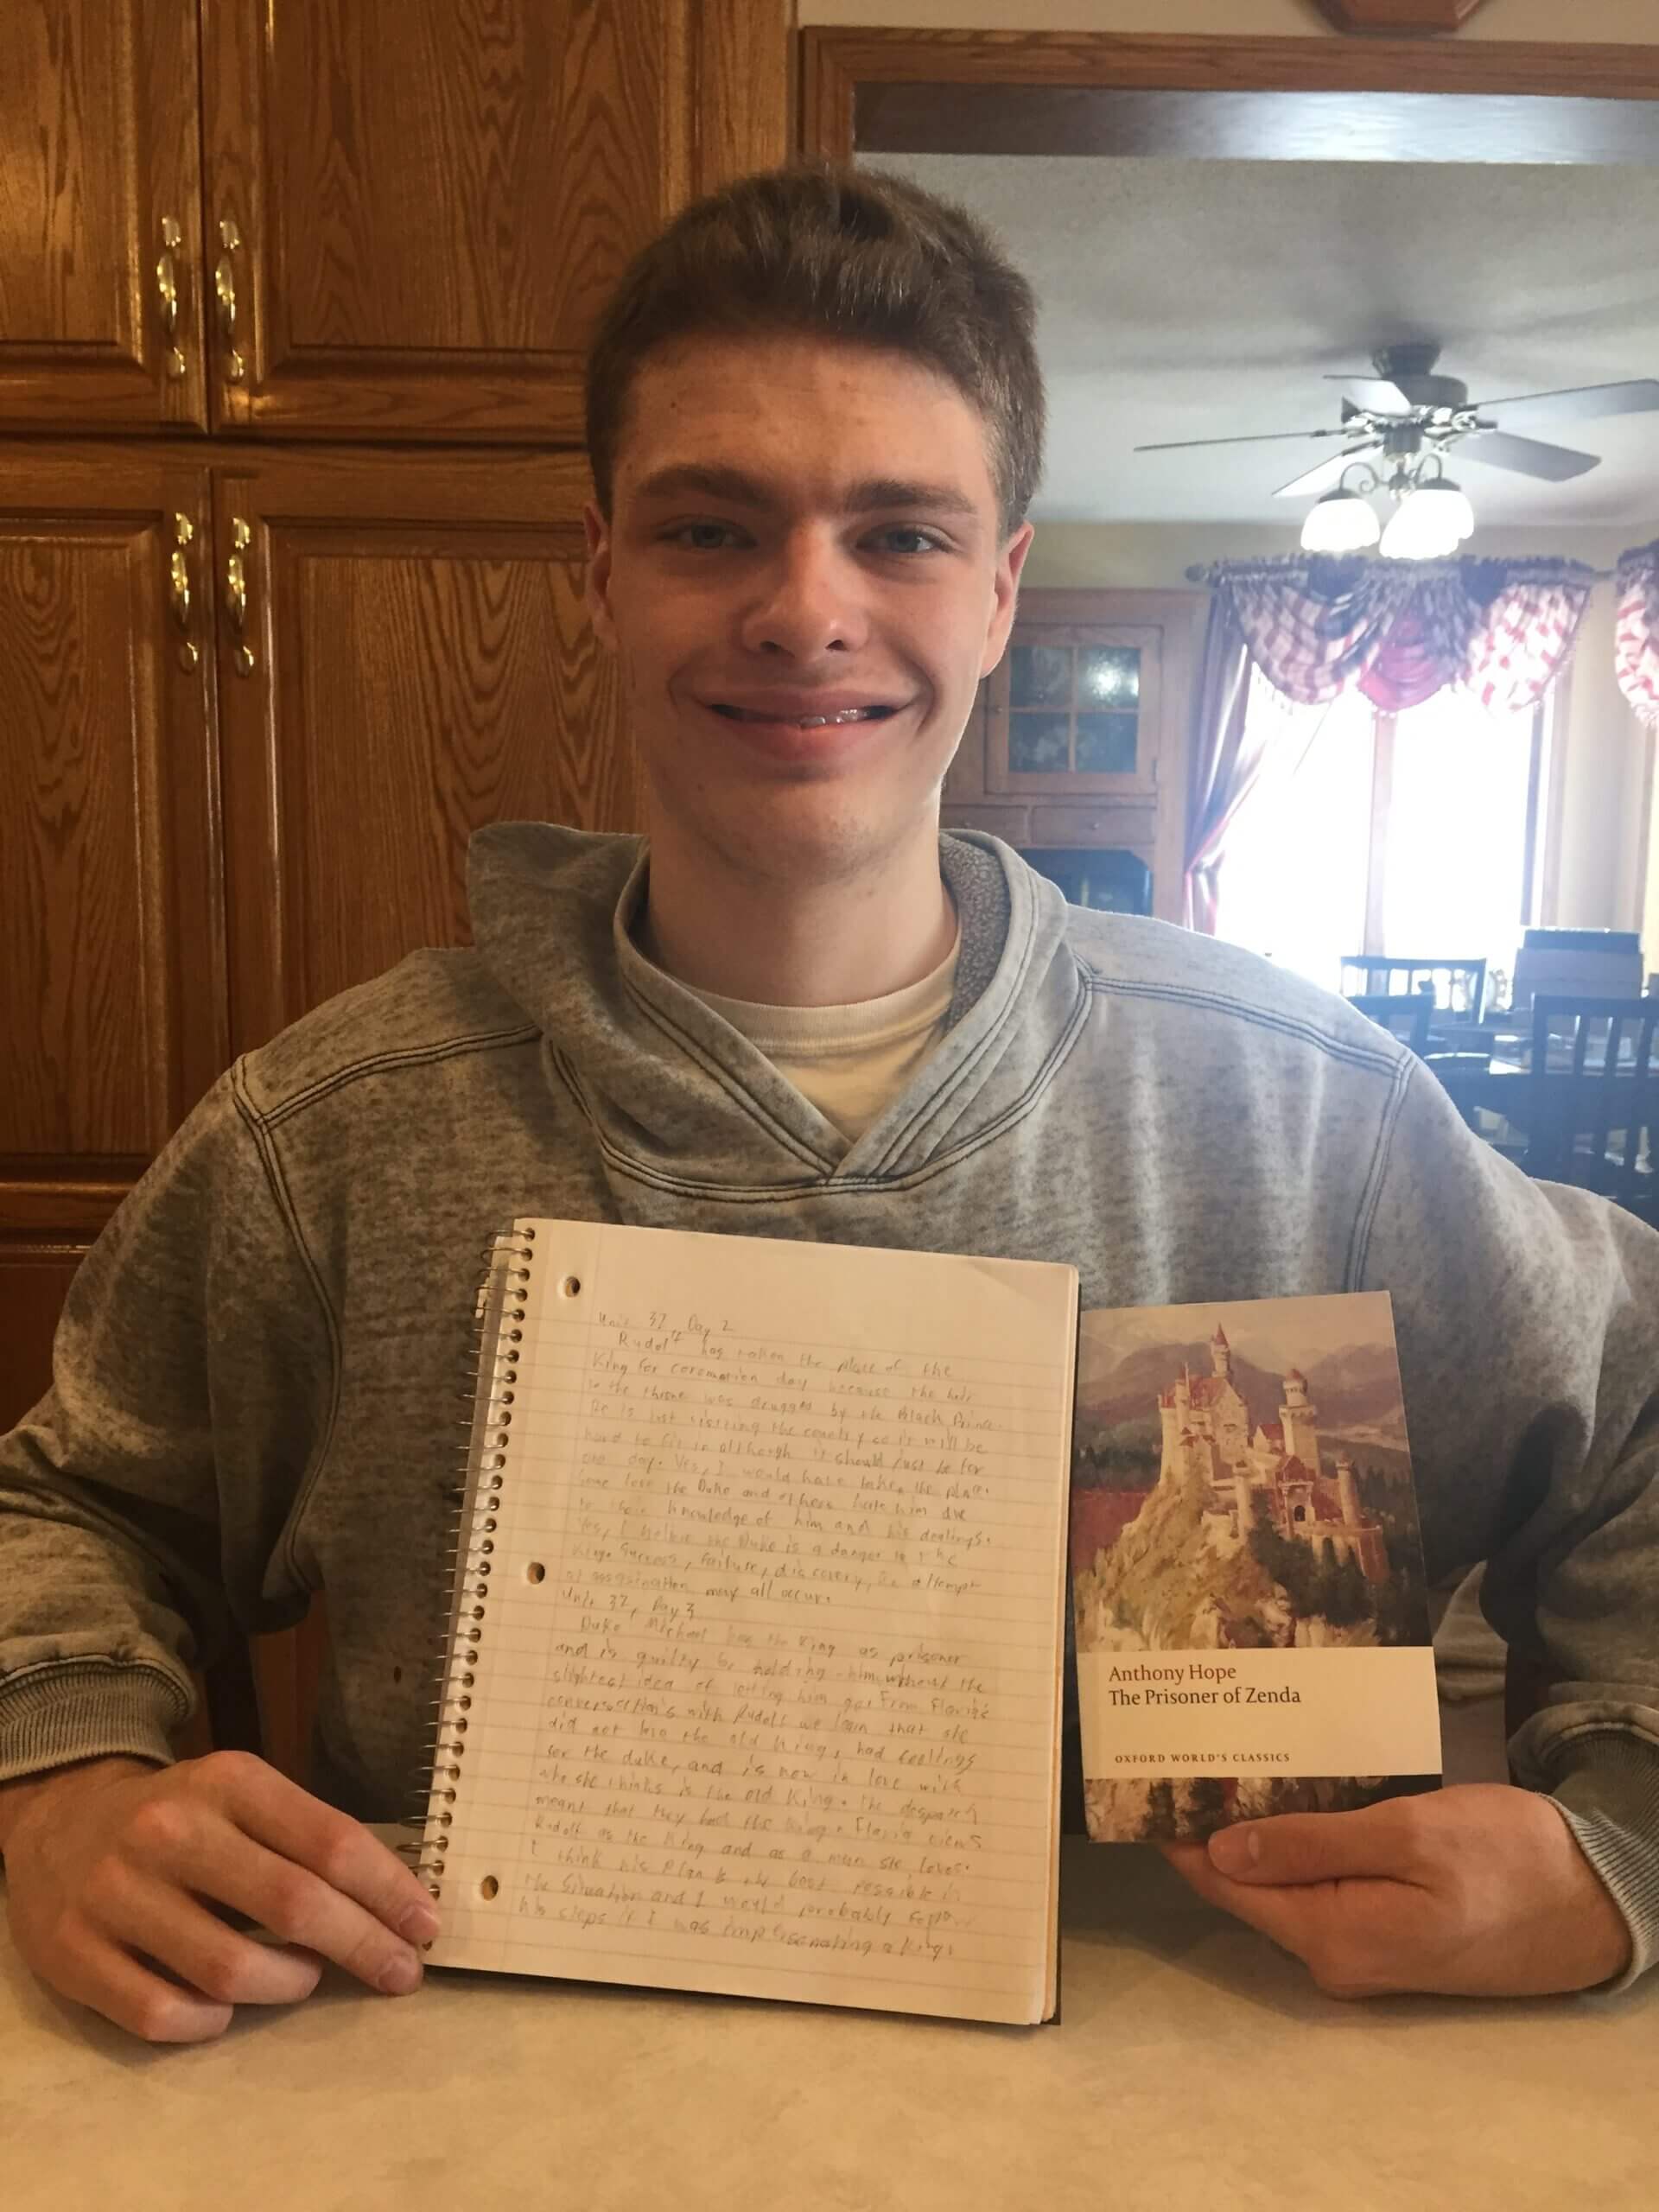 Unit 32, Day 2
Rudolf has taken the place of the
King for coronation day because the heir
to the throne was drugged by the Black Prince.
He is just visiting the country so it will be
hard to fit in although it should just be for
one day. Yes, I would have taken the place.
Some love the Duke and others hate him due
to their knowledge of him and his dealings.
Yes, I believe the Duke is a danger to the
King. Success, failure, discovery, or attempt
of assasination may all occur.
Unit 32, Day 3
Duke Michael has the King as prisoner
and is guilty by holding him without the
slightest idea of letting him go. From Flavia's
conversation's with Rudolf we learn that she
did not love the old King, had feelings
for the duke, and is now in love with
who she thinks is the old King. the despatch
meant that they lost the King. Flavia views
Rudolf as the King and as a man she loves.
I think his plan is the best possible in
the situation and I would probably follow
his steps if I was impersonating a King.
Anthony Hope
The Prisoner of Zenda
OXFORD WORLD'S CLASSICS